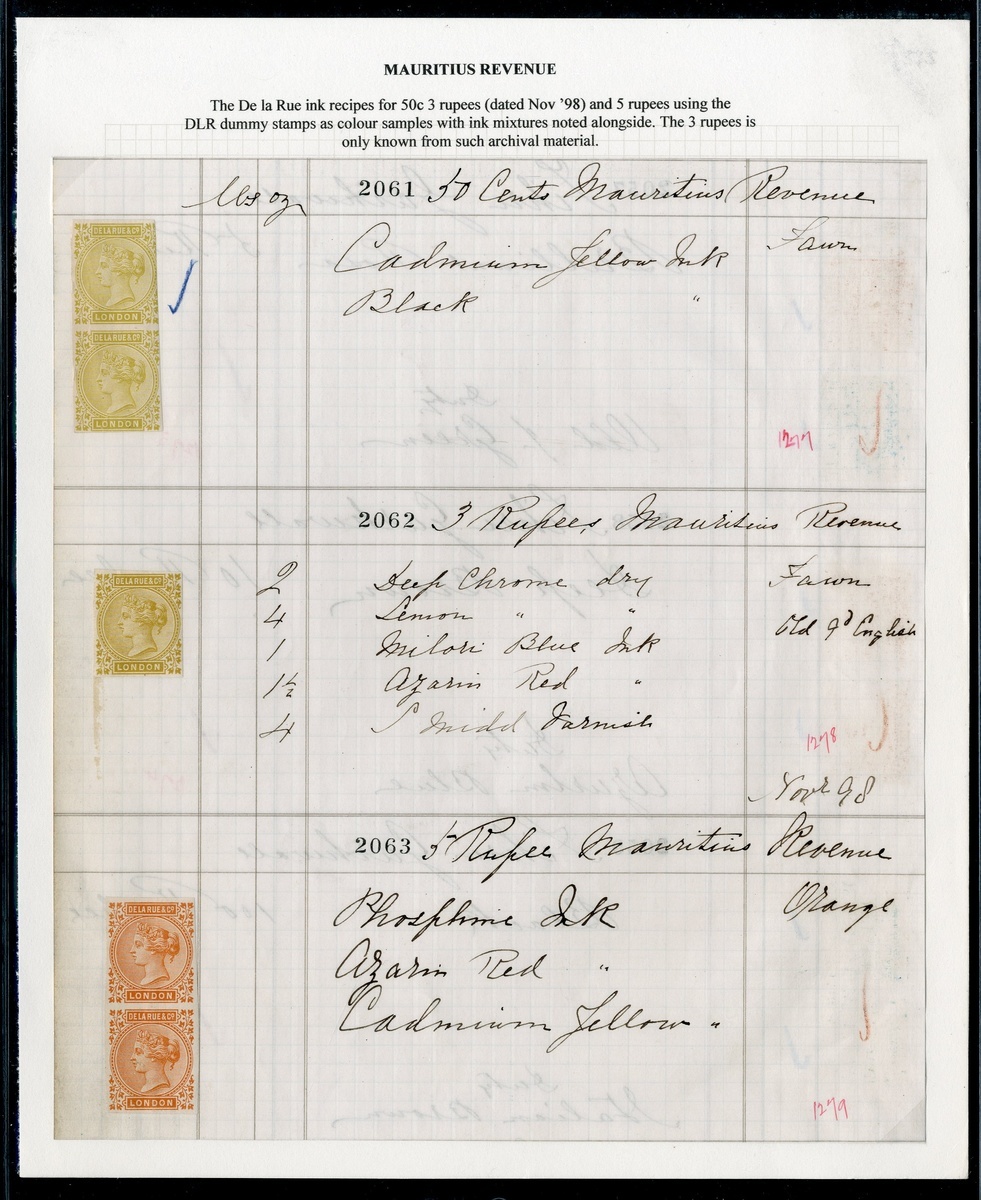 MAURITIUS REVENUE
The De la Rue ink recipes for 50c 3 rupees (dated Nov '98) and 5 rupees using the
DLR dummy stamps as colour samples with ink mixtures noted alongside. The 3 rupees is
only known from such archival material.
lbs oz 2061 50 Cents Mauritius Revenue
DE LA RUE & Co
LONDON
DE LA RUE & Co
LONDON
Cadmium Yellow Ink Fawn
Black "
1277
2062 3 Rupees, Mauritius Revenue
DE LA RUE & Co
LONDON
2 Deep Chrome dry Fawn
4 Lemon " " Old 9d English
1 Milori Blue Ink
1½ Azarin Red "
4 Midd Varnish
1278
Novr 98
2063 5 Rupee Mauritius Revenue
DE LA RUE & Co
LONDON
DE LA RUE & Co
LONDON
Phosphine Ink Orange
Azarin Red "
Cadmium Yellow "
1279